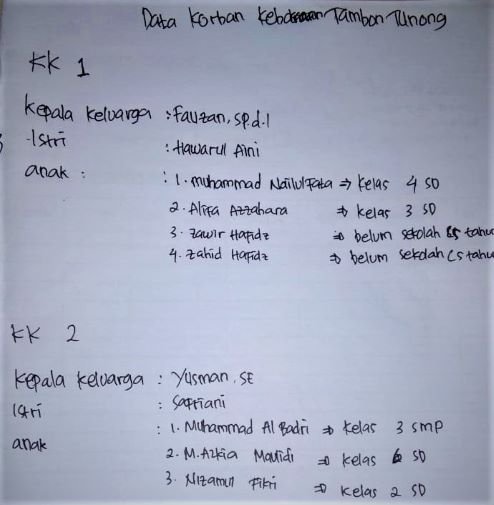 Data Korban Kebakaran Tambon Tunong
KK 1
Kepala Keluarga : Fauzan, SP.d.I
Istri : Hawarul Aini
anak : : 1. Muhammad Nailul Fata ⇒ Kelas 4 SD
2. Alifa Azzahara ⇒ Kelas 3 SD
3. Zawir Hafidz ⇒ belum sekolah (5 tahu
4. Zahid Hafidz ⇒ belum sekolah (5 tahu
KK 2
Kepala Keluarga : Yusman, SE
Istri : Safriani
anak : 1. Muhammad Al Badri ⇒ Kelas 3 SMP
2. M. Azkia Maulidi ⇒ Kelas 6 SD
3. Nizamul Fikri ⇒ Kelas 2 SD